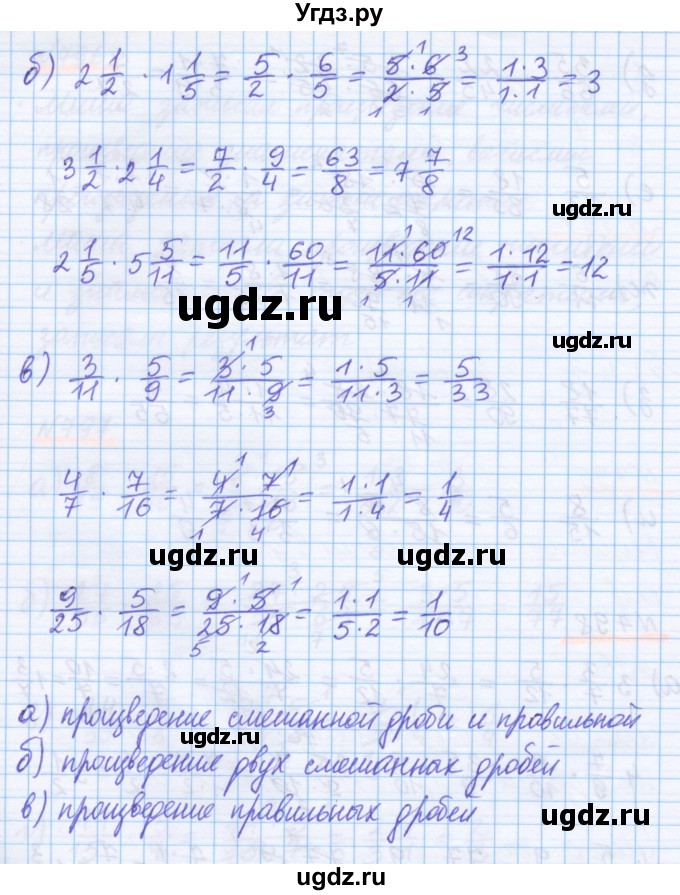 Угдз.ру
б) 2 1/2 · 1 1/5 = 5/2 · 6/5 = 5·6/2·5 1 3 1 1 = 1·3/1·1 = 3
3 1/2 · 2 1/4 = 7/2 · 9/4 = 63/8 = 7 7/8
ugdz.ru
2 1/5 · 5 5/11 = 11/5 · 60/11 = 11·60/5·11 1 12 1 1 = 1·12/1·1 = 12
ugdz.ru
ugdz.ru
в) 3/11 · 5/9 = 3·5/11·9 1 3 = 1·5/11·3 = 5/33
4/7 · 7/16 = 4·7/7·16 1 1 1 4 = 1·1/1·4 = 1/4
ugdz.ru
ugdz.ru
9/25 · 5/18 = 9·5/25·18 1 1 5 2 = 1·1/5·2 = 1/10
а) произведение смешанной дроби и правильной
ugdz.ru
б) произведение двух смешанных дробей
в) произведение правильных дробей
ugdz.ru
ugdz.ru